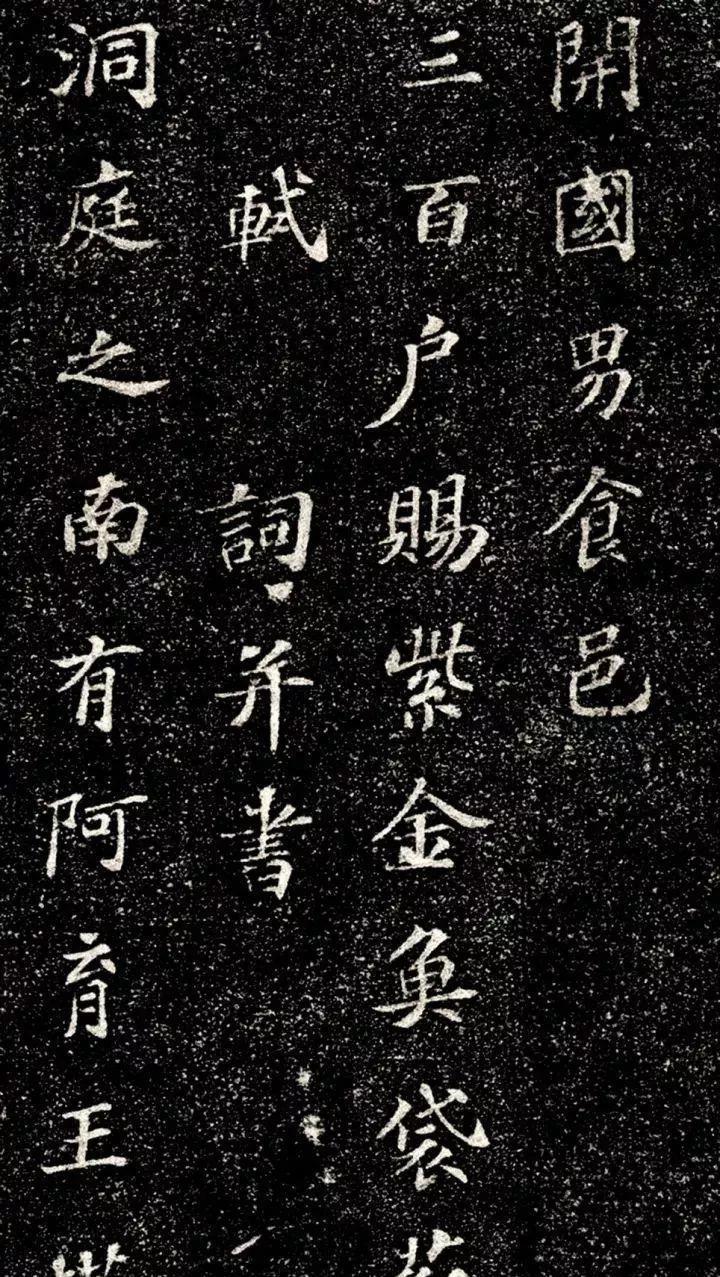 開國男食邑
三百户賜紫金魚袋
軾 詞并書
洞庭之南有阿育王